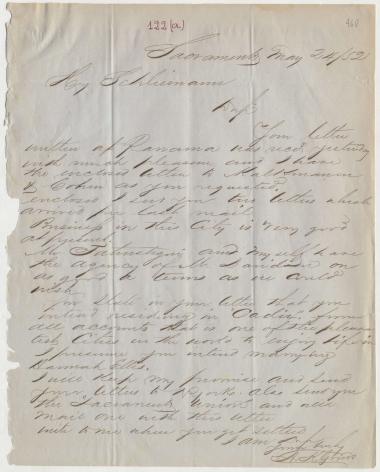 122 (a)
460
Sacramento May 24/52
Hy Schliemann
Your letter
written at Panama was rec'd yesterday
with much pleasure and I have
the enclosed letter to
& Cohen as you requested.
enclosed I send you two letters which
arrived per last mail.
Business in this City is very good
at present.
Mr and myself have
the agency on
as good terms as we could
wish.
You state in your letter that you
intend residing in Cadiz, from
all accounts that is one of the pleasan
test Cities in the world to enjoy life in
I presume you intend marrying
Hannah
I will keep my promise and send
your letters to also send you
the Sacramento Union and will
mail one with this letter
write to me when you get settled
I am
Yours truly